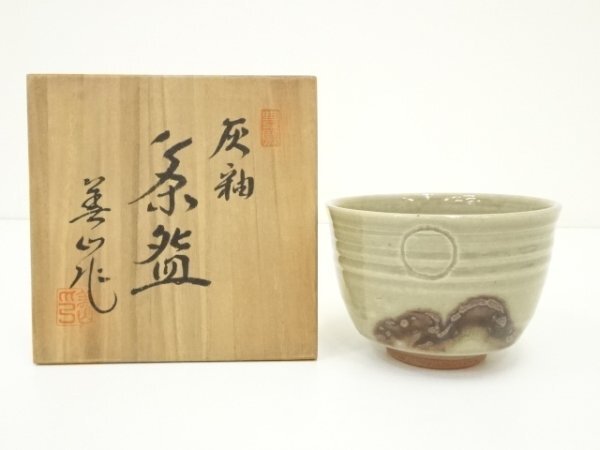 灰釉
茶盌
善山作